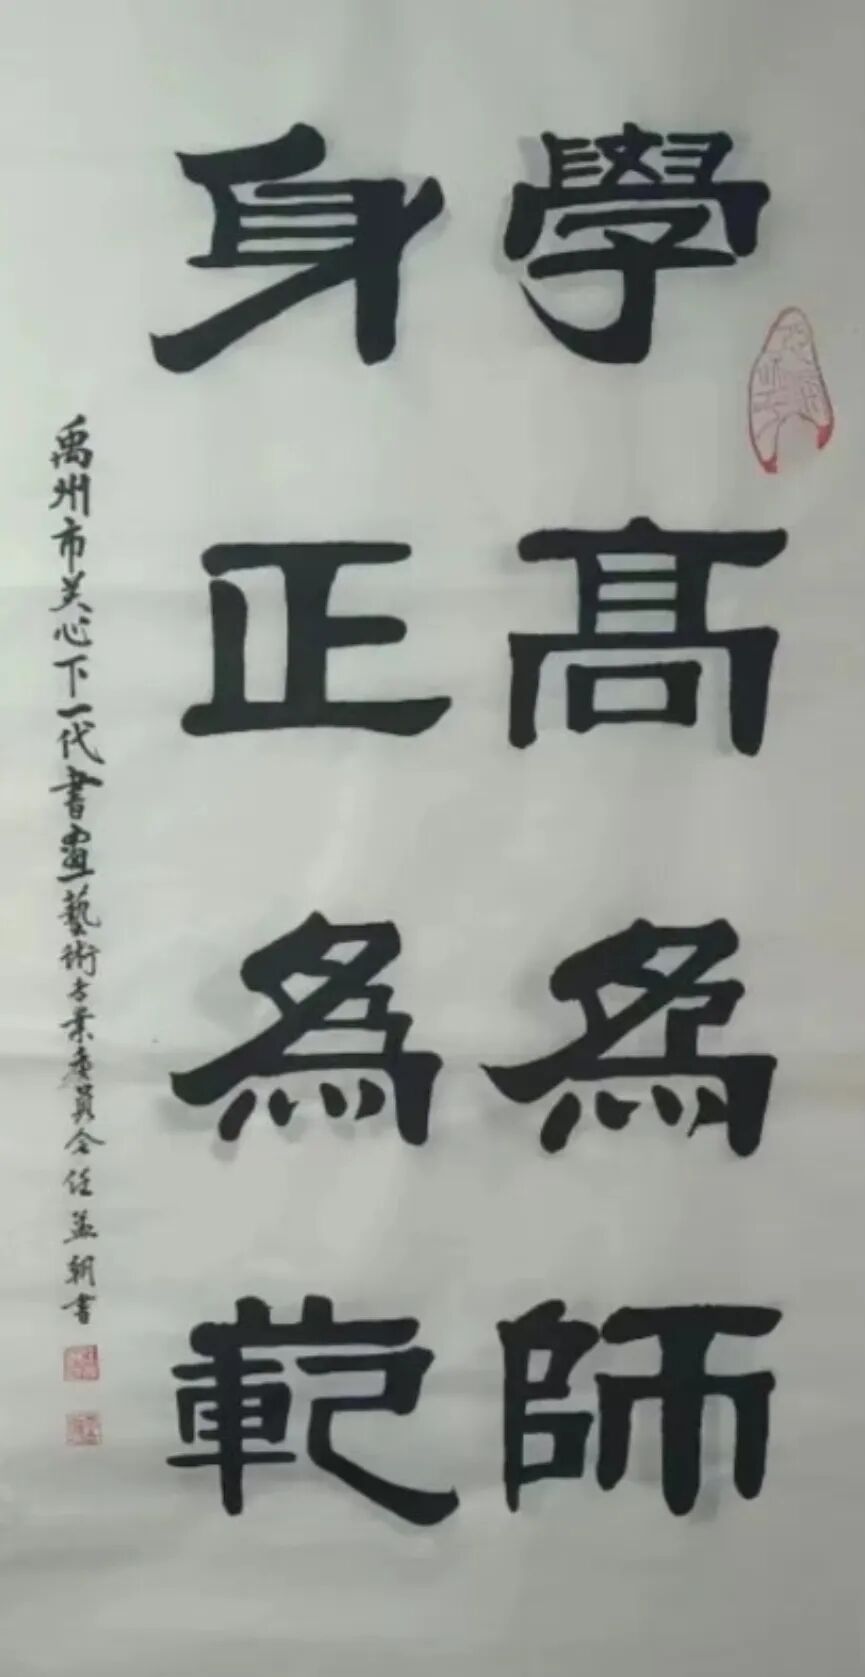 學高為師
身正為範
禹州市关心下一代書畫藝術专業委員会任孟朝書